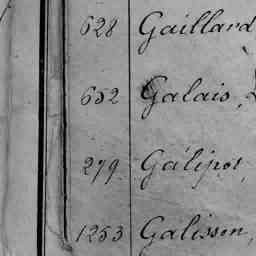 628 Gaillard
652 Galais,
279 Galipot,
1253 Galisson,